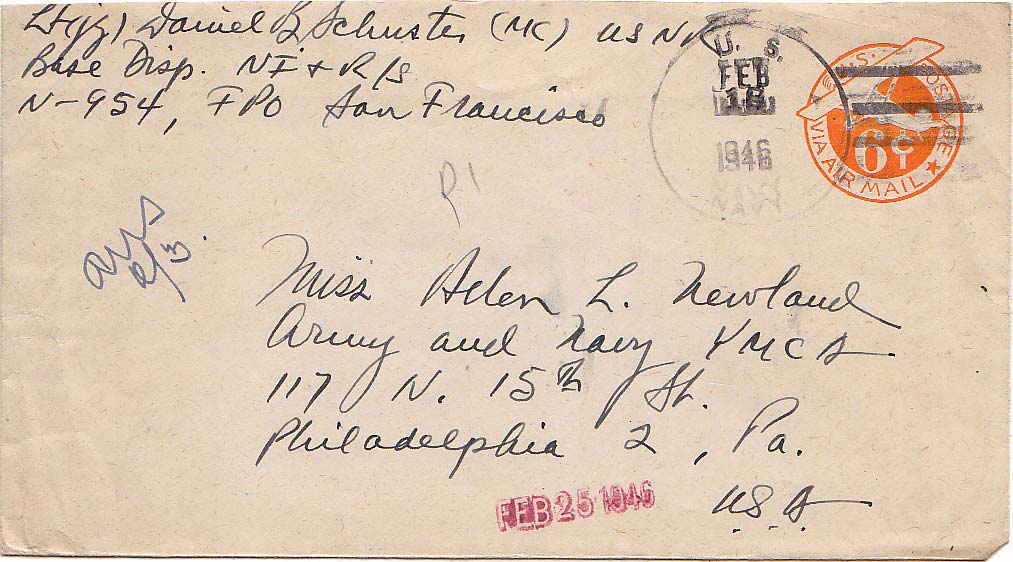 Lt(jg) Daniel B. Schuster (MC) USNR
Base Disp. NI & R/S
N-954, FPO San Francisco
U. S.
FEB
18
1946
NAVY
U.S. POSTAGE
6¢
VIA AIR MAIL
Miss Helen L. Newland
Army and Navy YMCA
117 N. 15th St.
Philadelphia 2, Pa.
U.S.A.
FEB 25 1946